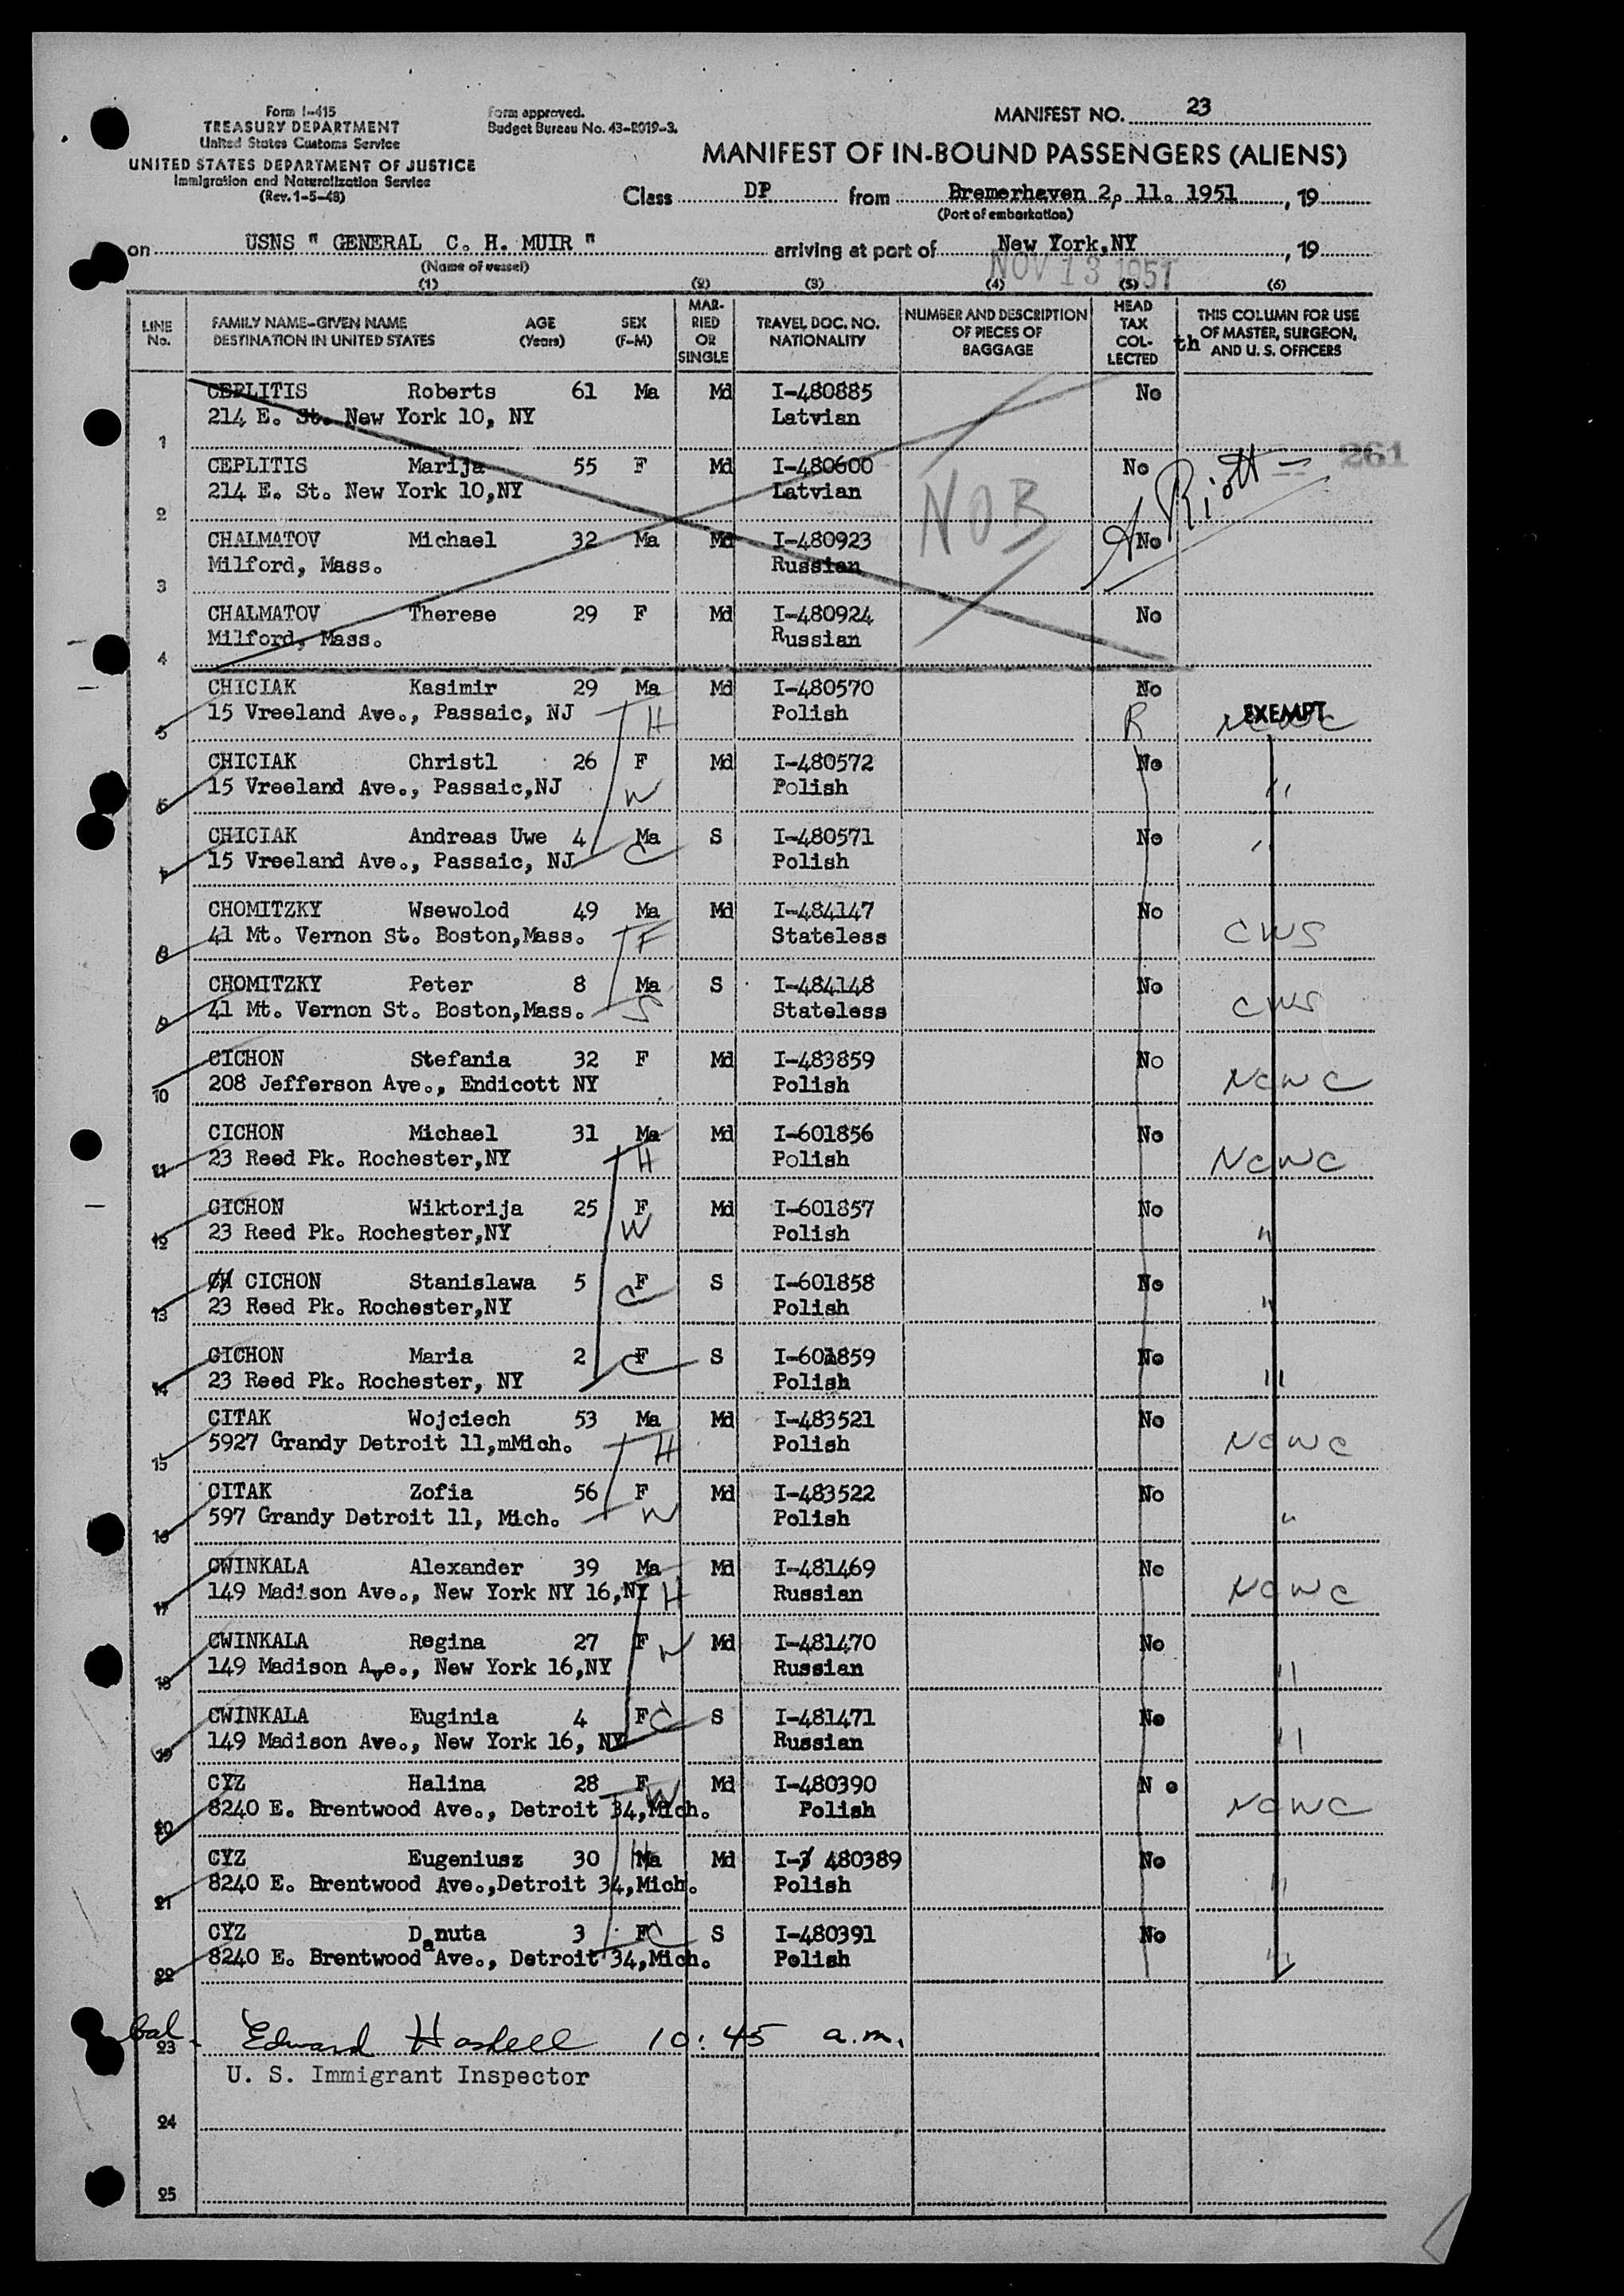 Form I-415
TREASURY DEPARTMENT
United States Customs Service
UNITED STATES DEPARTMENT OF JUSTICE
Immigration and Naturalization Service
(Rev. 1-5-48)
Form approved.
Budget Bureau No. 43-R019-3.
MANIFEST NO. 23
MANIFEST OF IN-BOUND PASSENGERS (ALIENS)
Class DP from Bremerhaven 2. 11. 1951, 19
(Port of embarkation)
on USNS " GENERAL C. H. MUIR " arriving at port of New York,NY, 19
(Name of vessel)
NOV 13 1951
(1) (2) (3) (4) (5) (6)
LINE No.
FAMILY NAME—GIVEN NAME AGE SEX
DESTINATION IN UNITED STATES (Years) (F-M)
MARRIED OR SINGLE
TRAVEL DOC. NO. NATIONALITY
NUMBER AND DESCRIPTION OF PIECES OF BAGGAGE
HEAD TAX COLLECTED
th
THIS COLUMN FOR USE OF MASTER, SURGEON, AND U. S. OFFICERS
CEPLITIS Roberts 61 Ma Md I-480885 No
1 214 E. St. New York 10, NY Latvian
261
CEPLITIS Marija 55 F Md I-480600 No
2 214 E. St. New York 10,NY Latvian
NOB
CHALMATOV Michael 32 Ma Md I-480923 No
3 Milford, Mass. Russian
CHALMATOV Therese 29 F Md I-480924 No
4 Milford, Mass. Russian
CHICIAK Kasimir 29 Ma Md I-480570 No
5 15 Vreeland Ave., Passaic, NJ H Polish R EXEMPT NCWC
CHICIAK Christl 26 F Md I-480572 No
6 15 Vreeland Ave., Passaic,NJ W Polish "
CHICIAK Andreas Uwe 4 Ma S I-480571 No "
7 15 Vreeland Ave., Passaic, NJ C Polish
CHOMITZKY Wsewolod 49 Ma Md I-484147 No
8 41 Mt. Vernon St. Boston,Mass. F Stateless CWS
CHOMITZKY Peter 8 Ma S I-484148 No
9 41 Mt. Vernon St. Boston,Mass. S Stateless CWS
CICHON Stefania 32 F Md I-483859 No
10 208 Jefferson Ave., Endicott NY Polish NCWC
CICHON Michael 31 Ma Md I-601856 No
11 23 Reed Pk. Rochester,NY H Polish NCWC
CICHON Wiktorija 25 F Md I-601857 No
12 23 Reed Pk. Rochester,NY W Polish "
CH CICHON Stanislawa 5 F S I-601858 No
13 23 Reed Pk. Rochester,NY C Polish "
CICHON Maria 2 F C S I-601859 No
14 23 Reed Pk. Rochester, NY Polish "
CITAK Wojciech 53 Ma Md I-483521 No
15 5927 Grandy Detroit 11,mMich. H Polish NCWC
CITAK Zofia 56 F Md I-483522 No
16 597 Grandy Detroit 11, Mich. W Polish "
CWINKALA Alexander 39 Ma Md I-481469 No
17 149 Madison Ave., New York NY 16,NY H Russian NCWC
CWINKALA Regina 27 F W Md I-481470 No
18 149 Madison Ave., New York 16,NY Russian "
CWINKALA Euginia 4 F C S I-481471 No
19 149 Madison Ave., New York 16, NY Russian "
CYZ Halina 28 F W Md I-480390 N o
20 8240 E. Brentwood Ave., Detroit 34,Mich. Polish NCWC
CYZ Eugeniusz 30 Ma Md I-3 480389 No
21 8240 E. Brentwood Ave.,Detroit 34,Mich. Polish "
CYZ Danuta 3 F C S I-480391 No
22 8240 E. Brentwood Ave., Detroit 34,Mich. Polish "
23 Edward Haskell 10:45 a.m.
U. S. Immigrant Inspector
24
25